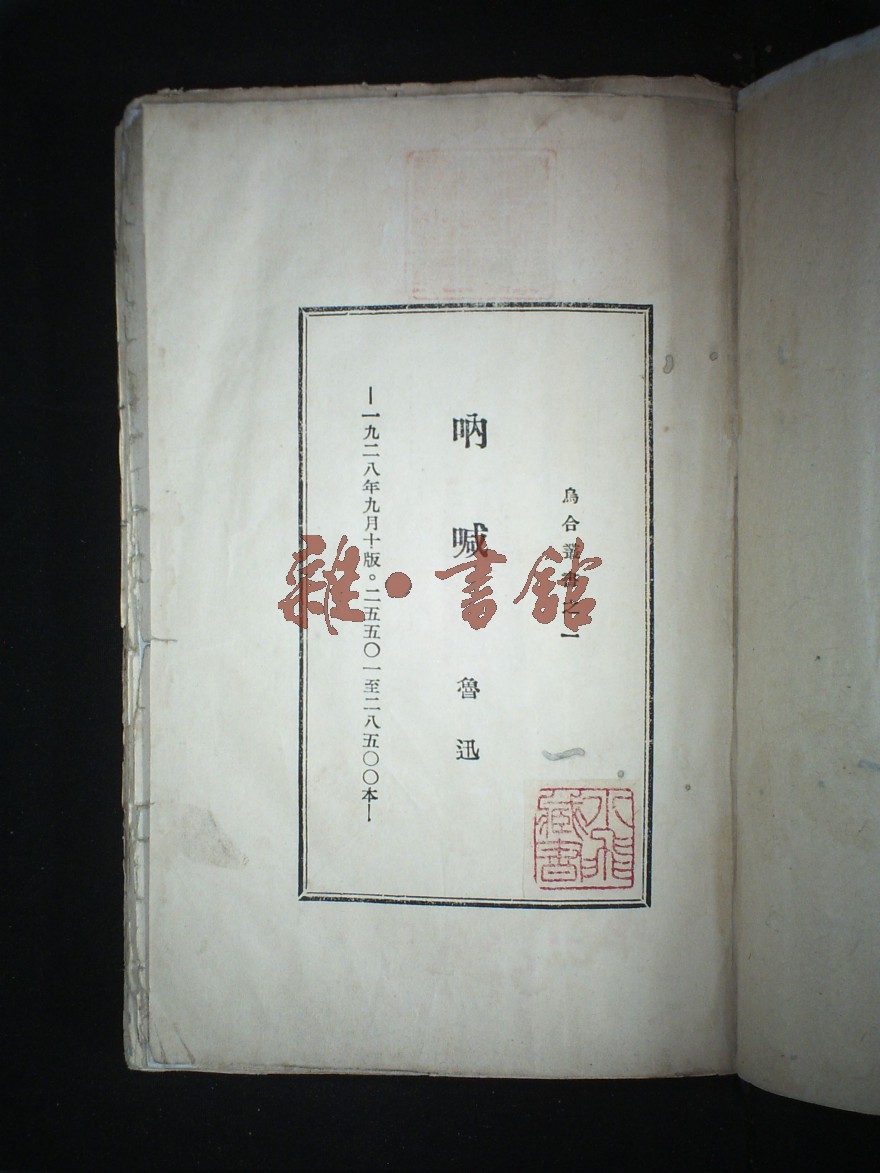 烏合叢書之一
吶喊 魯迅
—一九二八年九月十版。二五五〇一至二八五〇〇本—
雜·書館
藏書